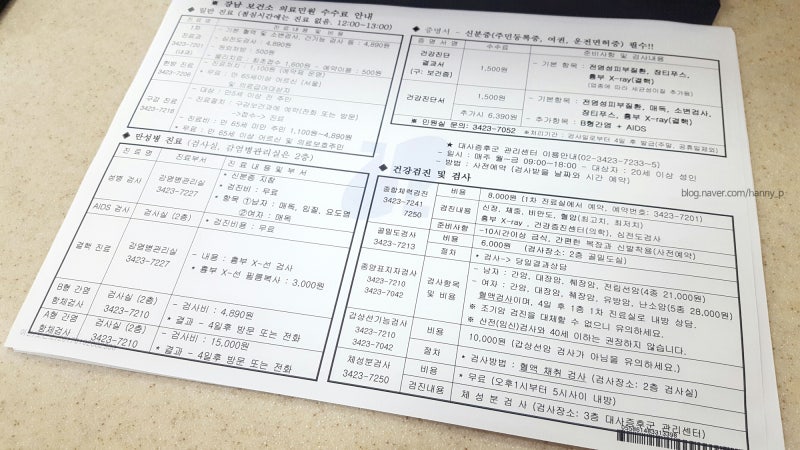 ★ 강남 보건소 의료민원 수수료 안내
◆ 일반 진료 (점심시간에는 진료 없음. 12:00-13:00)
심전도검사 : 4,890원
3423-7201
- 전회처방 : 500원
한방 진료
3423-7206
구강 진료
- 진료비 : 만 65세 미만 주민 1,100원~4,890원
* 무료 : 만 65세 이상 어르신 및 의료보호주민
◆ 만성병 진료 (검사실, 감염병관리실은 2층)
진 료 명 진료부서 진료 내용 및 부서
성병 검사 감염병관리실 3423-7227
* 신분증 지참
* 검진비 : 무료
* 항목 ①남자 : 매독, 임질, 요도염
②여자 : 매독
AIDS 검사 검사실 (2층) * 검진비용 : 무료
결핵 진료 감염병관리실 3423-7227
- 내용 : 흉부 X-선 검사
* 흉부 X-선 필름복사 : 3,000원
B형 간염 항체검사 검사실 (2층) 3423-7210
- 검사비 : 4,890원
* 결과 - 4일후 방문 또는 전화
A형 간염 항체검사 검사실 (2층) 3423-7210
- 검사비 : 15,000원
* 결과 - 4일후 방문 또는 전화
◆ 증명서 - 신분증(주민등록증, 여권, 운전면허증) 필수!!
증 명 서 명 수수료 준비사항 및 검사내용
건강진단 결과서 (구: 보건증) 1,500원
- 기본 항목 : 전염성피부질환, 장티푸스,
흉부 X-ray(결핵)
건강진단서 1,500원
- 기본항목 : 전염성피부질환, 매독, 소변검사,
장티푸스, 흉부 X-ray(결핵)
추가시 6,390원 - 추가항목 : B형간염 + AIDS
※ 민원실 문의: 3423-7052
★ 대사증후군 관리센터 이용안내(02-3423-7233~5)
- 일시 : 매주 월~금 09:00~18:00 - 대상자 : 20세 이상 성인
- 방법 : 사전예약 (검사받을 날짜와 시간 예약)
blog.naver.com/hanny_p
◆ 건강검진 및 검사
종합체력검진 3423-7241 7250
비용 8,000원 (1차 진료실에서 예약, 예약번호: 3423-7201)
검진내용 신장, 체중, 비만도, 혈압(최고치, 최저치)
흉부 X-ray , 건강증진센터(의학), 심전도검사
준비사항 -10시간이상 금식, 간편한 복장과 신발착용(사전예약)
골밀도검사 3423-7213
비용 6,000원 (검사장소: 2층 골밀도실)
절차 * 검사-> 당일결과상담
종양표지자검사 3423-7210 3423-7042
검사항목 및 비용
- 남자 : 간암, 대장암, 췌장암, 전립선암(4종 21,000원)
- 여자 : 간암, 대장암, 췌장암, 유방암, 난소암(5종 28,000원)
혈액검사이며, 4일 후 1층 1차 진료실로 내방 상담.
※ 조기암 검진을 대체할 수 없으니 유의하세요.
※ 산전(임신)검사와 40세 이하는 권장하지 않습니다.
갑상선기능검사 3423-7210 3423-7042
비용 10,000원 (갑상선암 검사가 아님을 유의하세요.)
절차 * 검사방법 : 혈액 채취 검사 (검사장소: 2층 검사실)
체성분검사 3423-7250
비용 * 무료 (오후1시부터 5시사이 내방)
검진내용 체 성 분 검 사 (검사장소: 3층 대사증후군 관리센터)